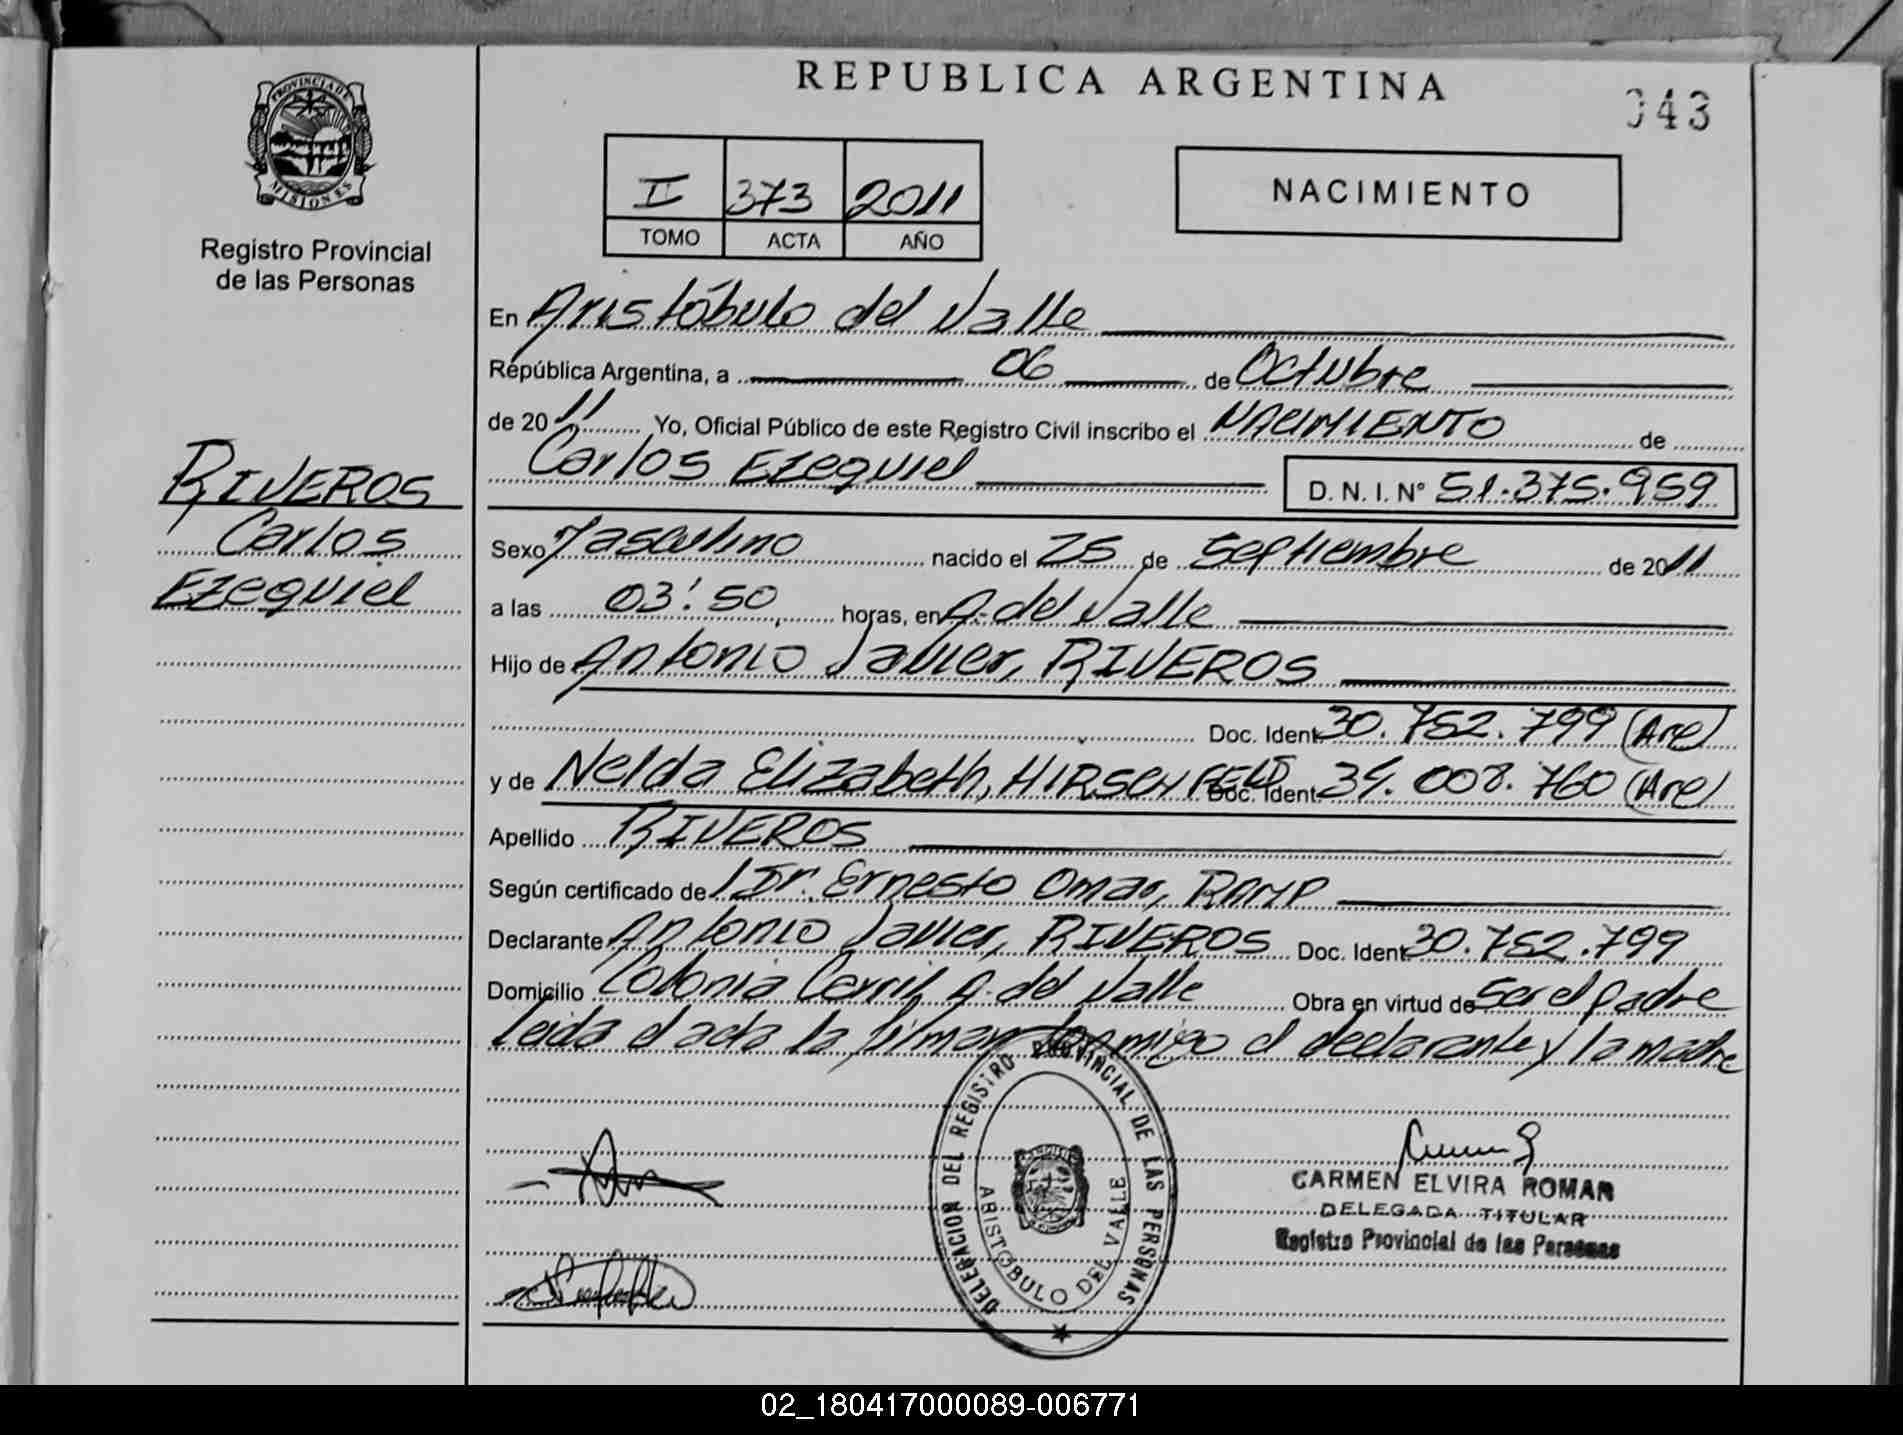 REPUBLICA ARGENTINA
043
PROVINCIA DE
MISIONES
Registro Provincial
de las Personas
II 373 2011
TOMO ACTA AÑO
NACIMIENTO
En Aristóbulo del Valle
República Argentina, a 06 de Octubre
de 2011 Yo, Oficial Público de este Registro Civil inscribo el NACIMIENTO de
Carlos Ezequiel D. N. I. N° 51.375.959
RIVEROS
Carlos
Ezequiel
Sexo Masculino nacido el 25 de Septiembre de 2011
a las 03:50 horas, en A. del Valle
Hijo de Antonio Javier, RIVEROS
Doc. Ident. 30.752.799 (Arg)
y de Nelda Elizabeth, HIRSCHFELD Doc. Ident. 34.008.760 (Arg)
Apellido RIVEROS
Según certificado de Dr. Ernesto Omar, RAMP
Declarante Antonio Javier, RIVEROS Doc. Ident. 30.752.799
Domicilio Colonia A. del Valle Obra en virtud de Ser el padre
leida el acta la firman conmigo el declarante y la madre
DELEGACION DEL REGISTRO PROVINCIAL DE LAS PERSONAS
ARISTOBULO DEL VALLE
CARMEN ELVIRA ROMAN
DELEGADA TITULAR
Registro Provincial de las Personas
02_180417000089-006771